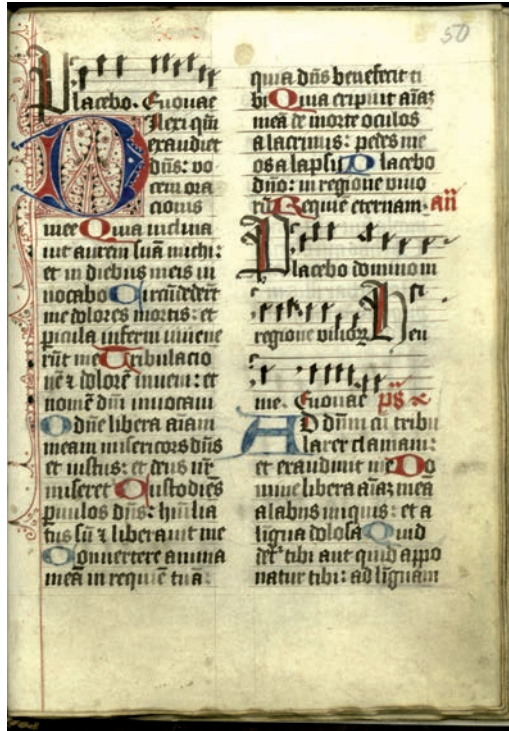 50
Placebo. Euouae
Dilexi qm̄
exaudiet
dn̄s: vo
cem ora
cionis
mee Quia inclina
uit aurem suā michi:
et in diebus meis in
uocabo Circūdederūt
me dolores mortis: et
picula inferni inuene
rūt me Tribulacio
nē ⁊ dolorē inueni: et
nomē dn̄i inuocaui
O dn̄e libera aīam
meam misericors dn̄s
et iustus: et deus nr̄
miseret̄ Custodiēs
puulos dn̄s: hūilia
tus sū ⁊ liberauit me
Conuertere anima
meā in requiē tuā:
quia dn̄s benefecit ti
bi Quia eripuit aīaꝫ
meā de morte oculos
a lacrimis: pedes me
os a lapsu Placebo
dn̄o: in regione uiuo
rū Requiē eternam. an̄
Placebo domino in
regione viuoꝝ Heu
me. Euouae ps̄
AD dn̄m cū tribu
larer clamaui:
et exaudiuit me Do
mine libera aīaꝫ meā
a labiis iniquis: et a
ligua dolosa Quid
det̄ tibi aut quid appo
natur tibi: ad līguam